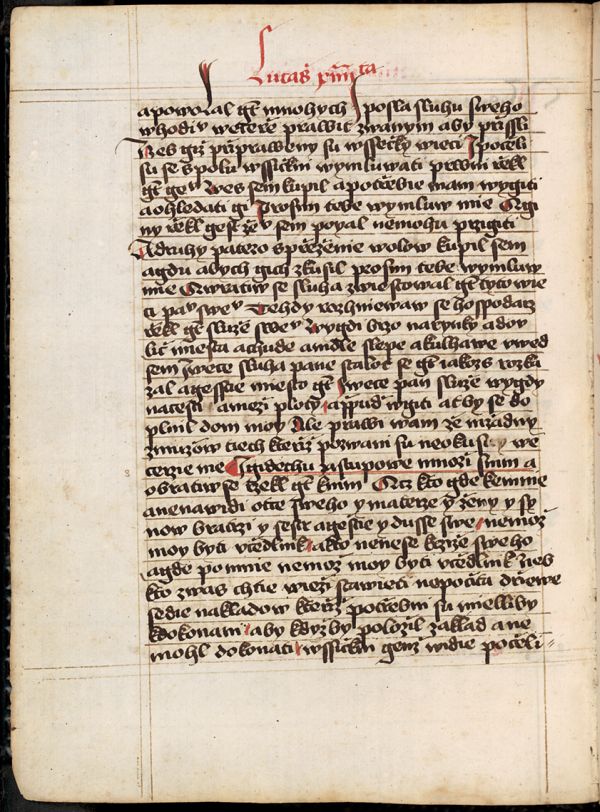 Lucaš xiiii ta
apowolal gt mnohych I posla sluhu sweho
whodiu weteře prawic zwanym aby přissli
Nes giž připrawenu su wssečky wieci I počeli
su se spolu wssickni wymluwati prwni řekl
gt geu Wes sem kupil a potřebie mam wygiti
a ohledati gi Prosim tebe wymluw mie A gi
ny řekl gest ženu sem poyal nemohu przigiti
A druhy patezo spřeženie wolow kupil sem
a gdu abych gich zkusil prosim tebe wymluw
mie A wratiw se sluha zwiestowal gt tyto wie
ci pau sweu Tehdy rozhniewaw se hospodarz
řekl gt sluze sweu Wygdi brzo na rynky a do v
lic miesta a chude a mdle slepe a kulhawe vwed
sem I wece sluha pane stalot se gt iakozs rozka
zal a gesstie miesto gt I wece pan sluze wygdy
na cesti a mezi ploty a přpud wgiti at by se do
plnil dom moy Ale prawi wam ze nizadny
z muzow tiech kteříž pozwani su neokusi we
cerzie me I gidiechu zastupowe mnozi s nim a
obratiw se rzekl gt k nim Acz kto gde ke mnie
a nenawidi otce sweho y materze y ženy y sy
now bratrzi y sestr a gestie y dusse swe nemož
moy byti včedlnik a kto nenese krzize sweho
a gde po mnie nemož moy byti včedlnik Nes
kto z was chtie wiezi stawieti nepočita dřewe
sedie nakladow kteříž potřebni su mielliby
k dokonani aby kdyžby položil zaklad a ne
mohl dokonati wssickni genž widie počeli